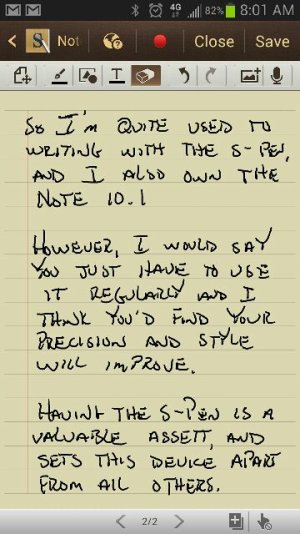 4G 82% 8:01 AM
S Not Close Save
T
So I'm QUITE USED TO
WRITING WITH THE S-PEN,
AND I ALSO OWN THE
NOTE 10.1
HOWEVER, I WOULD SAY
YOU JUST HAVE TO USE
IT REGULARLY AND I
THINK YOU'D FIND YOUR
PRECISION AND STYLE
WILL IMPROVE.
HAVING THE S-PEN IS A
VALUABLE ASSETT, AND
SETS THIS DEVICE APART
FROM ALL OTHERS.
2/2